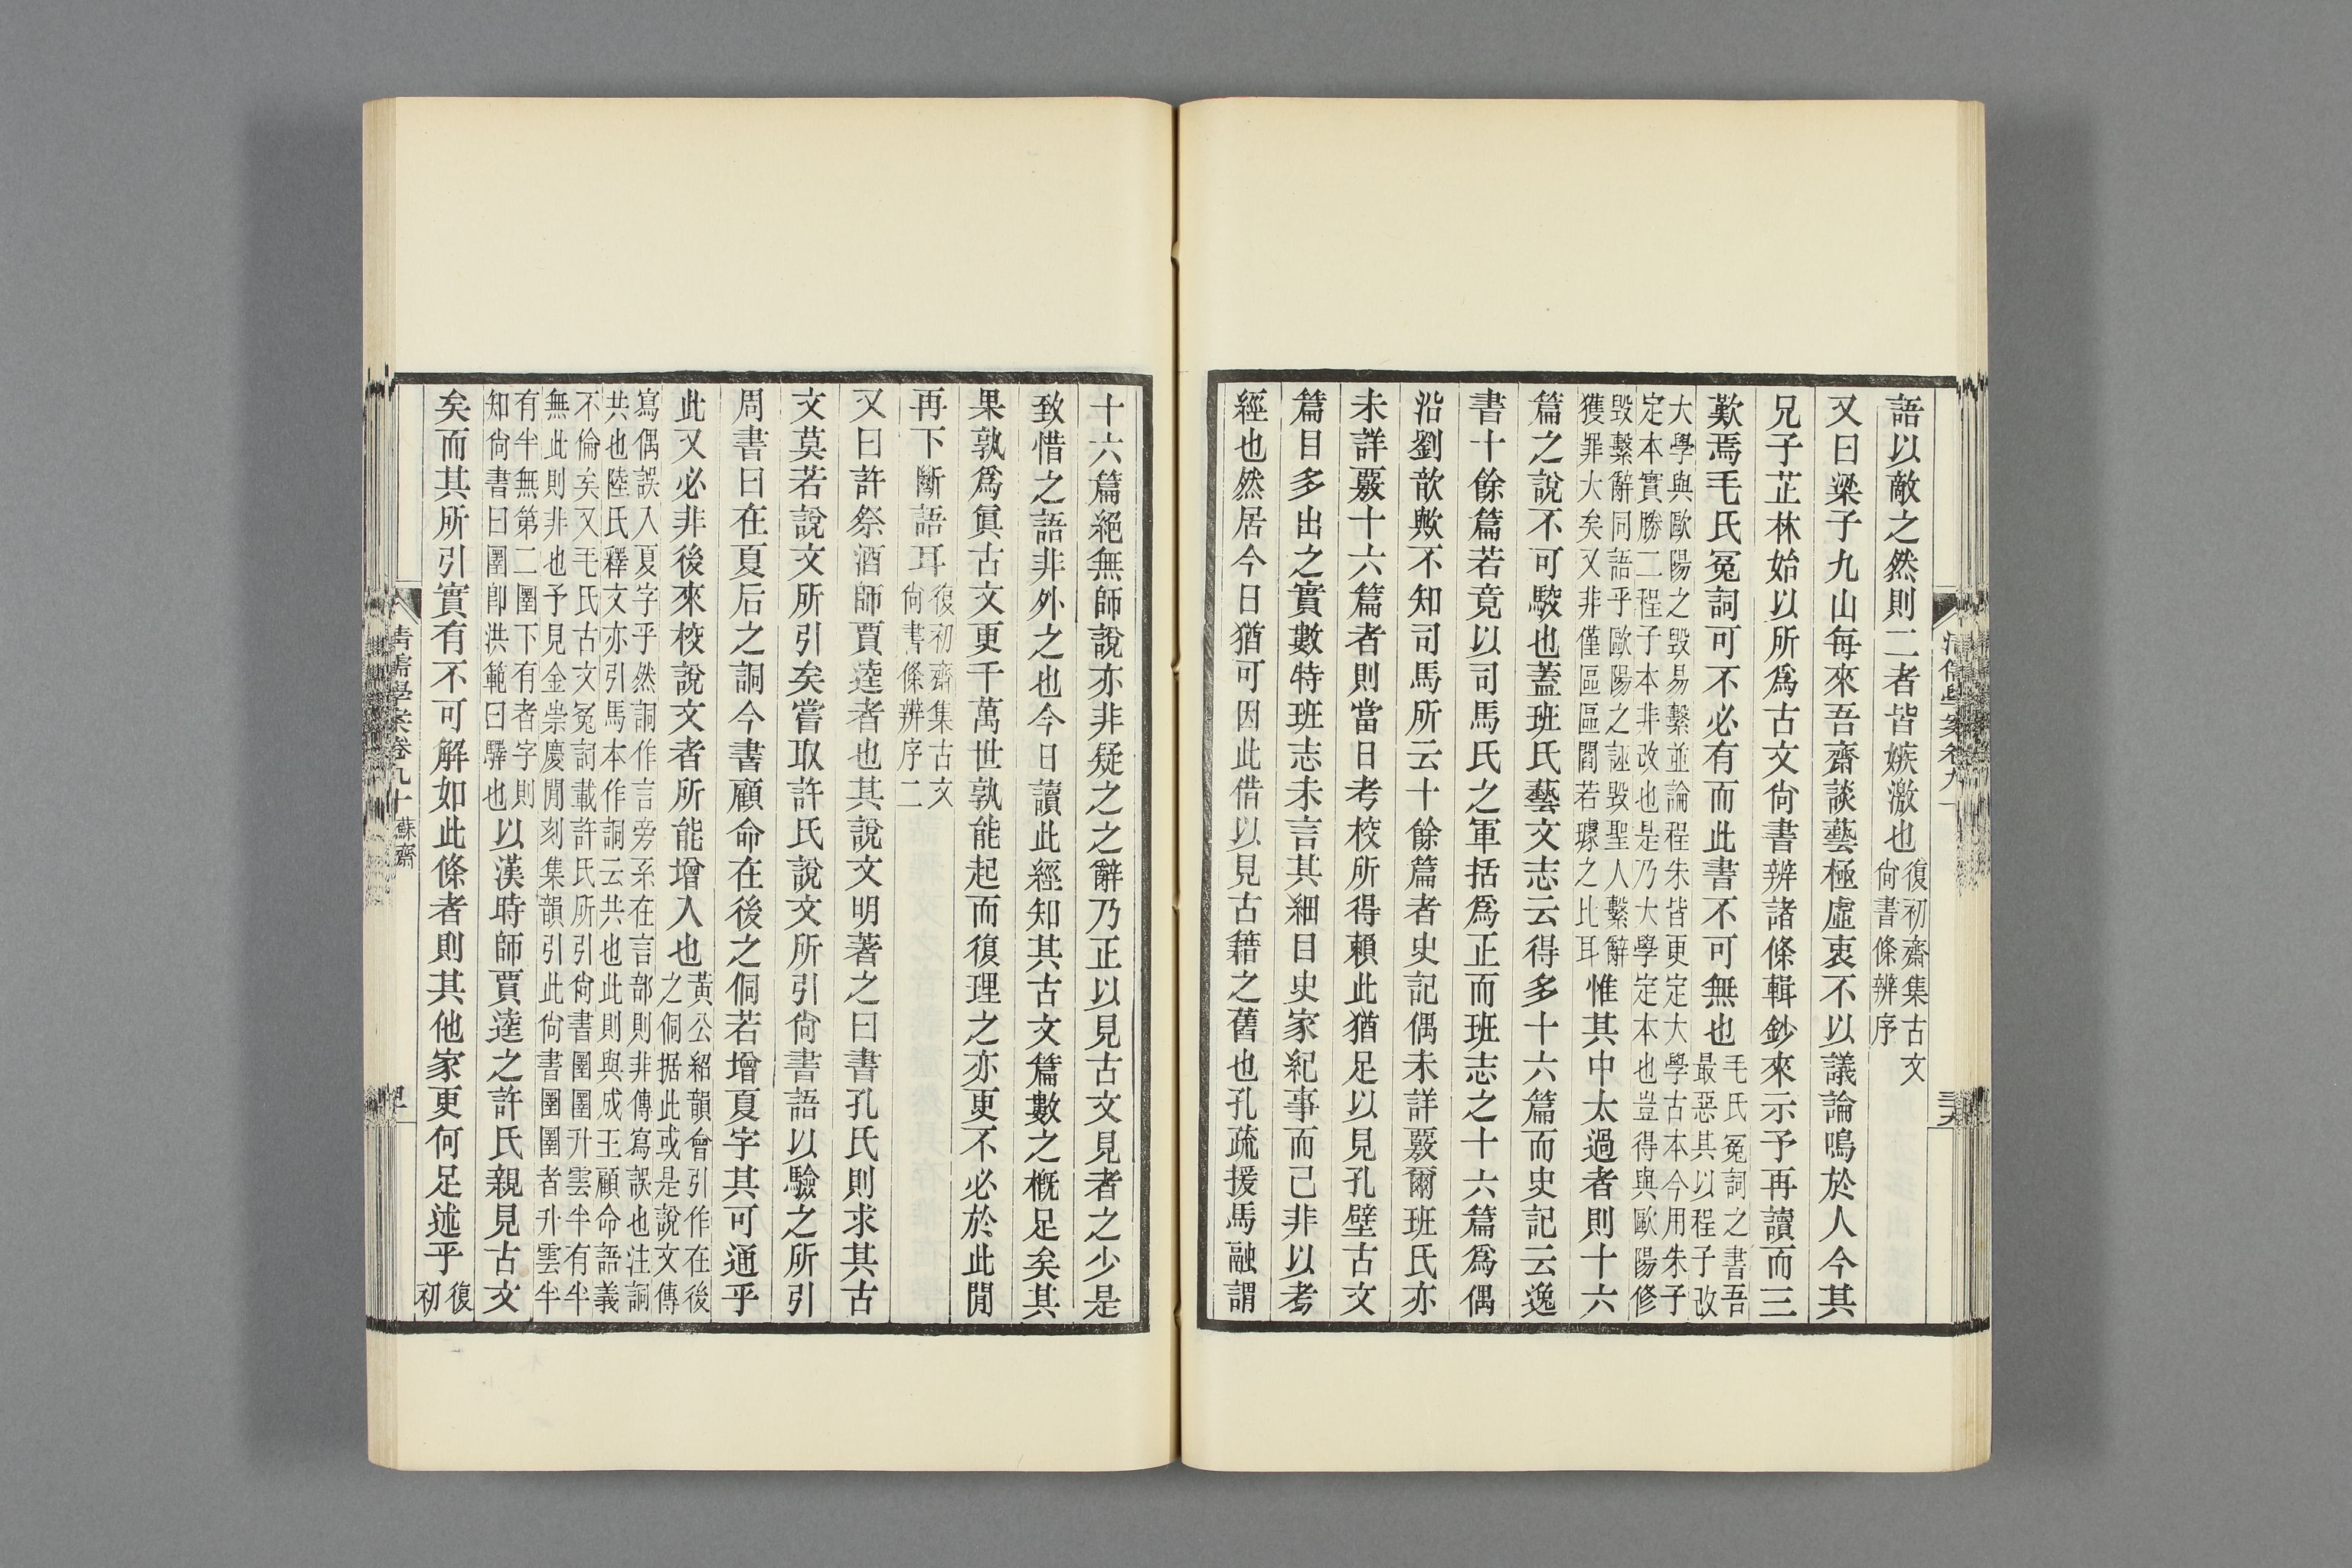 語以敵之然則二者皆嫉激也復初齋集古文尙書條辨序
又曰梁子九山每來吾齋談藝極虛衷不以議論鳴於人今其
兄子芷林始以所爲古文尙書辨諸條輯鈔來示予再讀而三
歎焉毛氏冤詞可不必有而此書不可無也毛氏冤詞之書吾最惡其以程子改
大學與歐陽之毀易繫並論程朱皆更定大學古本今用朱子定本實勝二程子本非改也是乃大學定本也豈得與歐陽修
毀繫辭同語乎歐陽之誣毀聖人繫辭獲罪大矣又非僅區區閻若璩之比耳惟其中太過者則十六
篇之說不可駮也蓋班氏藝文志云得多十六篇而史記云逸
書十餘篇若竟以司馬氏之軍括爲正而班志之十六篇爲偶
沿劉歆歟不知司馬所云十餘篇者史記偶未詳覈爾班氏亦
未詳覈十六篇者則當日考校所得賴此猶足以見孔壁古文
篇目多出之實數特班志未言其細目史家紀事而已非以考
經也然居今日猶可因此借以見古籍之舊也孔疏援馬融謂
十六篇絕無師說亦非疑之之辭乃正以見古文見者之少是
致惜之語非外之也今日讀此經知其古文篇數之槪足矣其
果孰爲眞古文更千萬世孰能起而復理之亦更不必於此閒
再下斷語耳復初齋集古文尙書條辨序二
又曰許祭酒師賈逵者也其說文明著之曰書孔氏則求其古
文莫若說文所引矣嘗取許氏說文所引尙書語以驗之所引
周書曰在夏后之詷今書顧命在後之侗若增夏字其可通乎
此又必非後來校說文者所能增入也黃公紹韻會引作在後之侗据此或是說文傳
寫偶誤入夏字乎然詷作言旁系在言部則非傳寫誤也注詷共也陸氏釋文亦引馬本作詷云共也此則與成王顧命語義
不倫矣又毛氏古文冤詞載許氏所引尙書圛圛升雲半有半無此則非也予見金崇慶閒刻集韻引此尙書圛圛者升雲半
有半無第二圛下有者字則知尙書曰圛卽洪範曰驛也以漢時師賈逵之許氏親見古文
矣而其所引實有不可解如此條者則其他家更何足述乎復初
清儒學案卷九十 蘇齋